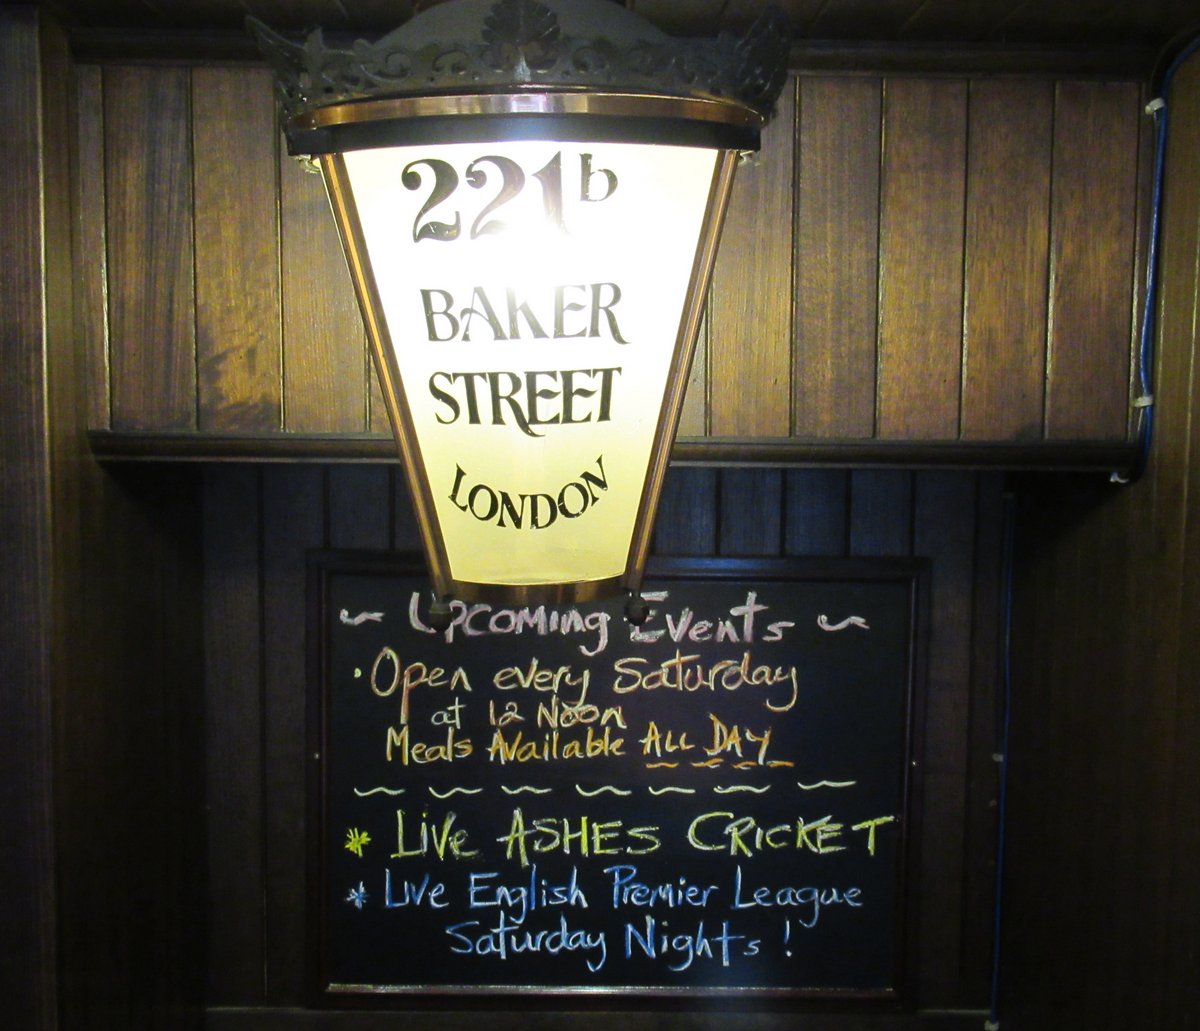 221b
BAKER
STREET
LONDON
~ Upcoming Events ~
· Open every Saturday
at 12 Noon
Meals Available ALL DAY
* Live ASHES CRICKET
* Live English Premier League
Saturday Nights !